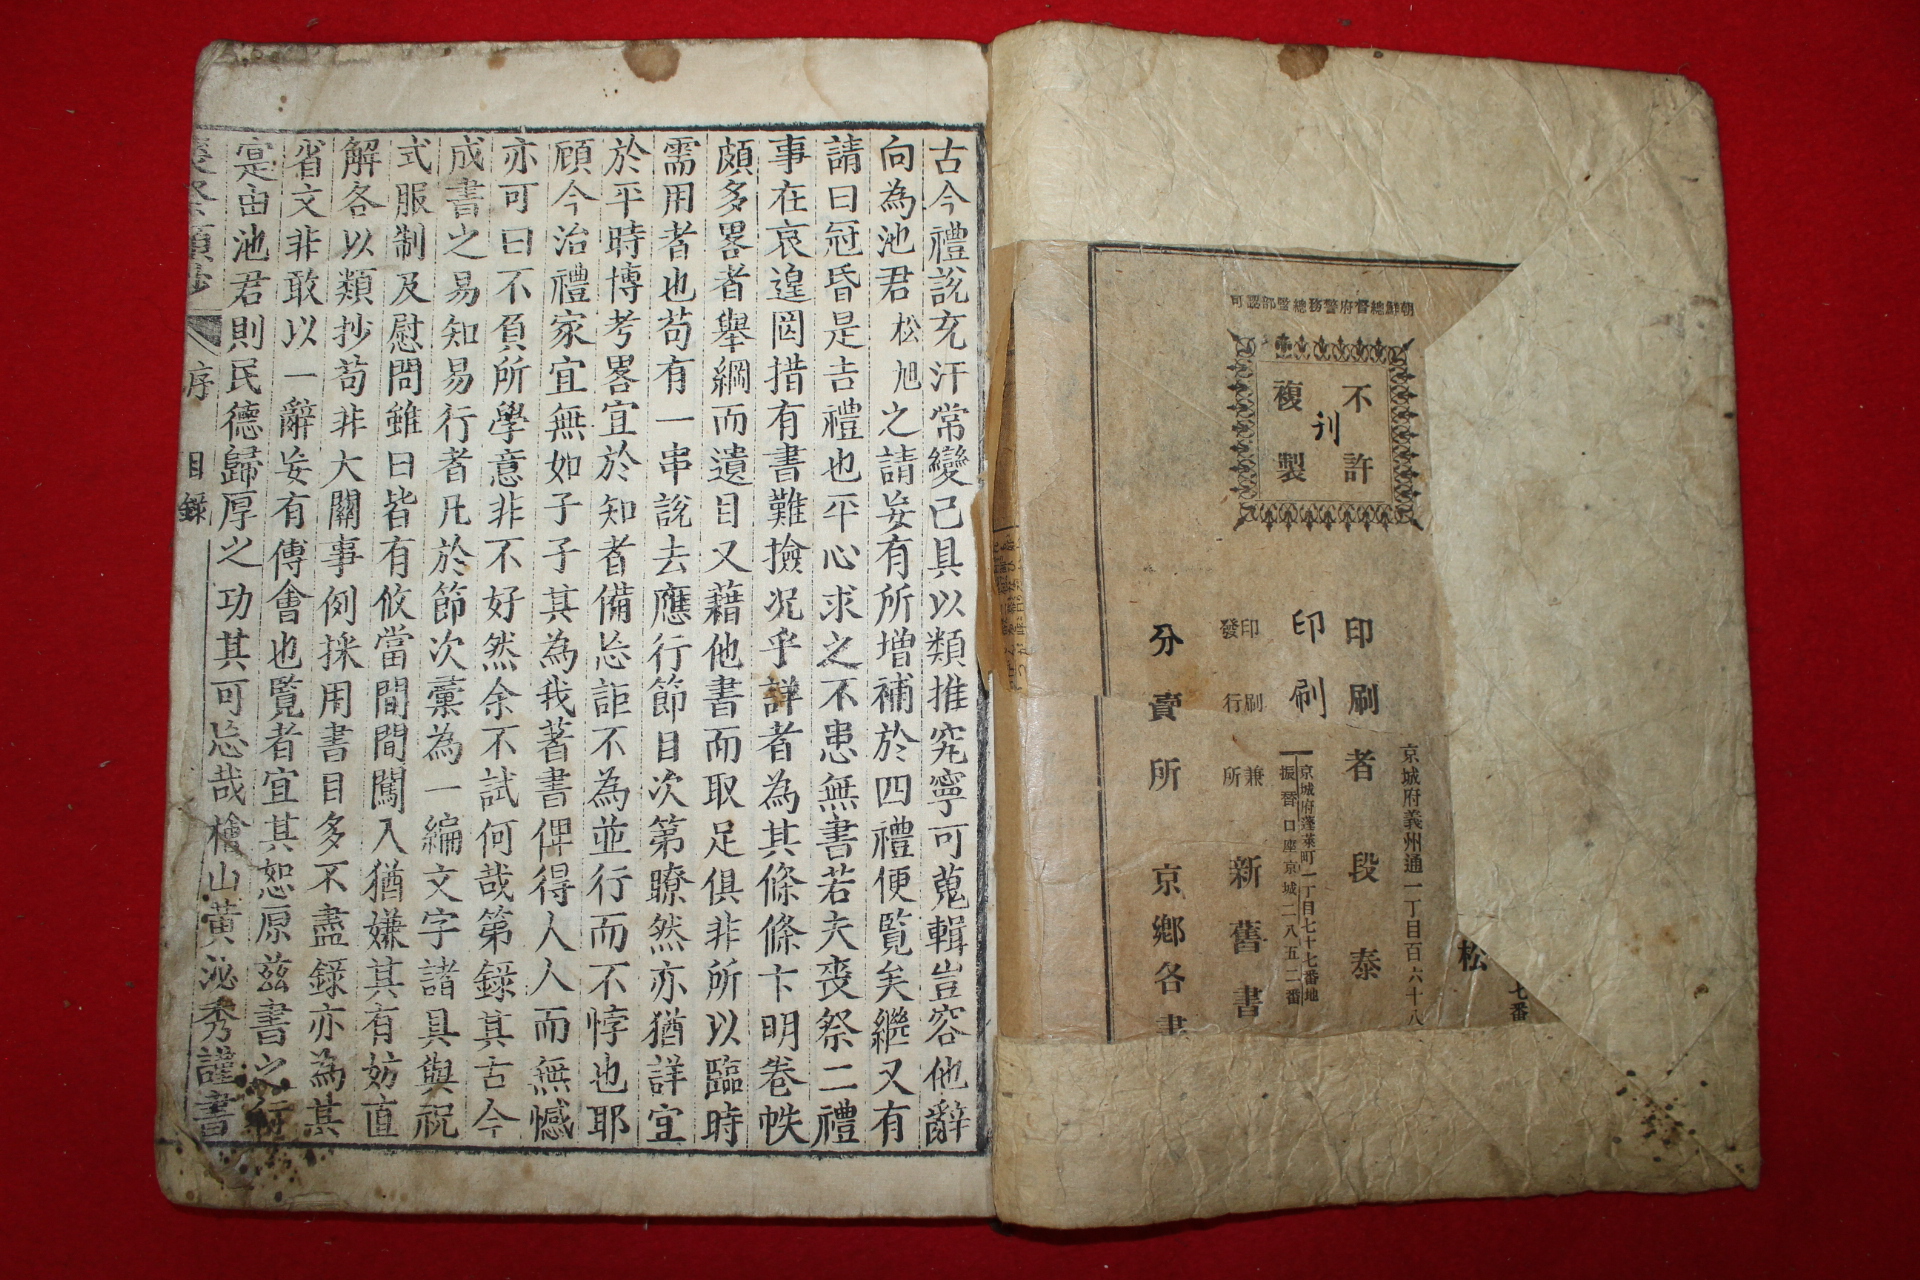 朝鮮總督府警務總監部認可
不許
複製
刊
京城府義州通一丁目百六十八
印刷者 段泰
印刷
京城府蓬萊町一丁目七十七番地
振替口座京城二八五二番
印刷兼
發行所
新舊書
分賣所 京鄉各書
松
七番
古今禮說充汗常變已具以類推究寧可蒐輯豈容他辭
向為池君松旭之請妄有所增補於四禮便覽矣繼又有
請曰冠昏是吉禮也平心求之不患無書若夫喪祭二禮
事在哀遑罔措有書難撿况乎詳者為其條條卞明卷帙
頗多畧者舉綱而遺目又藉他書而取足俱非所以臨時
需用者也苟有一串說去應行節目次第瞭然亦猶詳宜
於平時博考畧宜於知者備忘詎不為並行而不悖也耶
顧今治禮家宜無如子子其為我著書俾得人人而無憾
亦可曰不負所學意非不好然余不試何哉第錄其古今
成書之易知易行者凡於節次彙為一編文字諸具與祝
式服制及慰問雖曰皆有攸當間間闖入猶嫌其有妨直
解各以類抄苟非大關事例採用書目多不盡錄亦為其
省文非敢以一辭妄有傅會也覽者宜其恕原茲書之行
寔由池君則民德歸厚之功其可忘哉檜山黃泌秀謹書
喪祭類抄 序 目錄